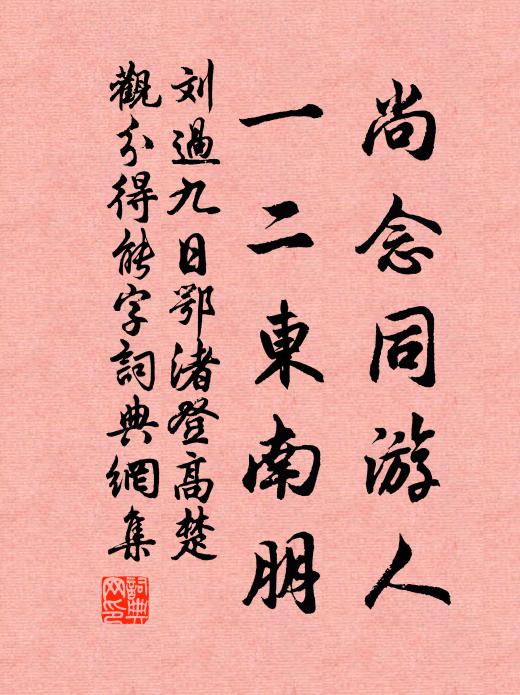 尚念同游人
一二東南朋
刘過九日鄂渚登高楚
觀分得能字詞典網集
詞典網印